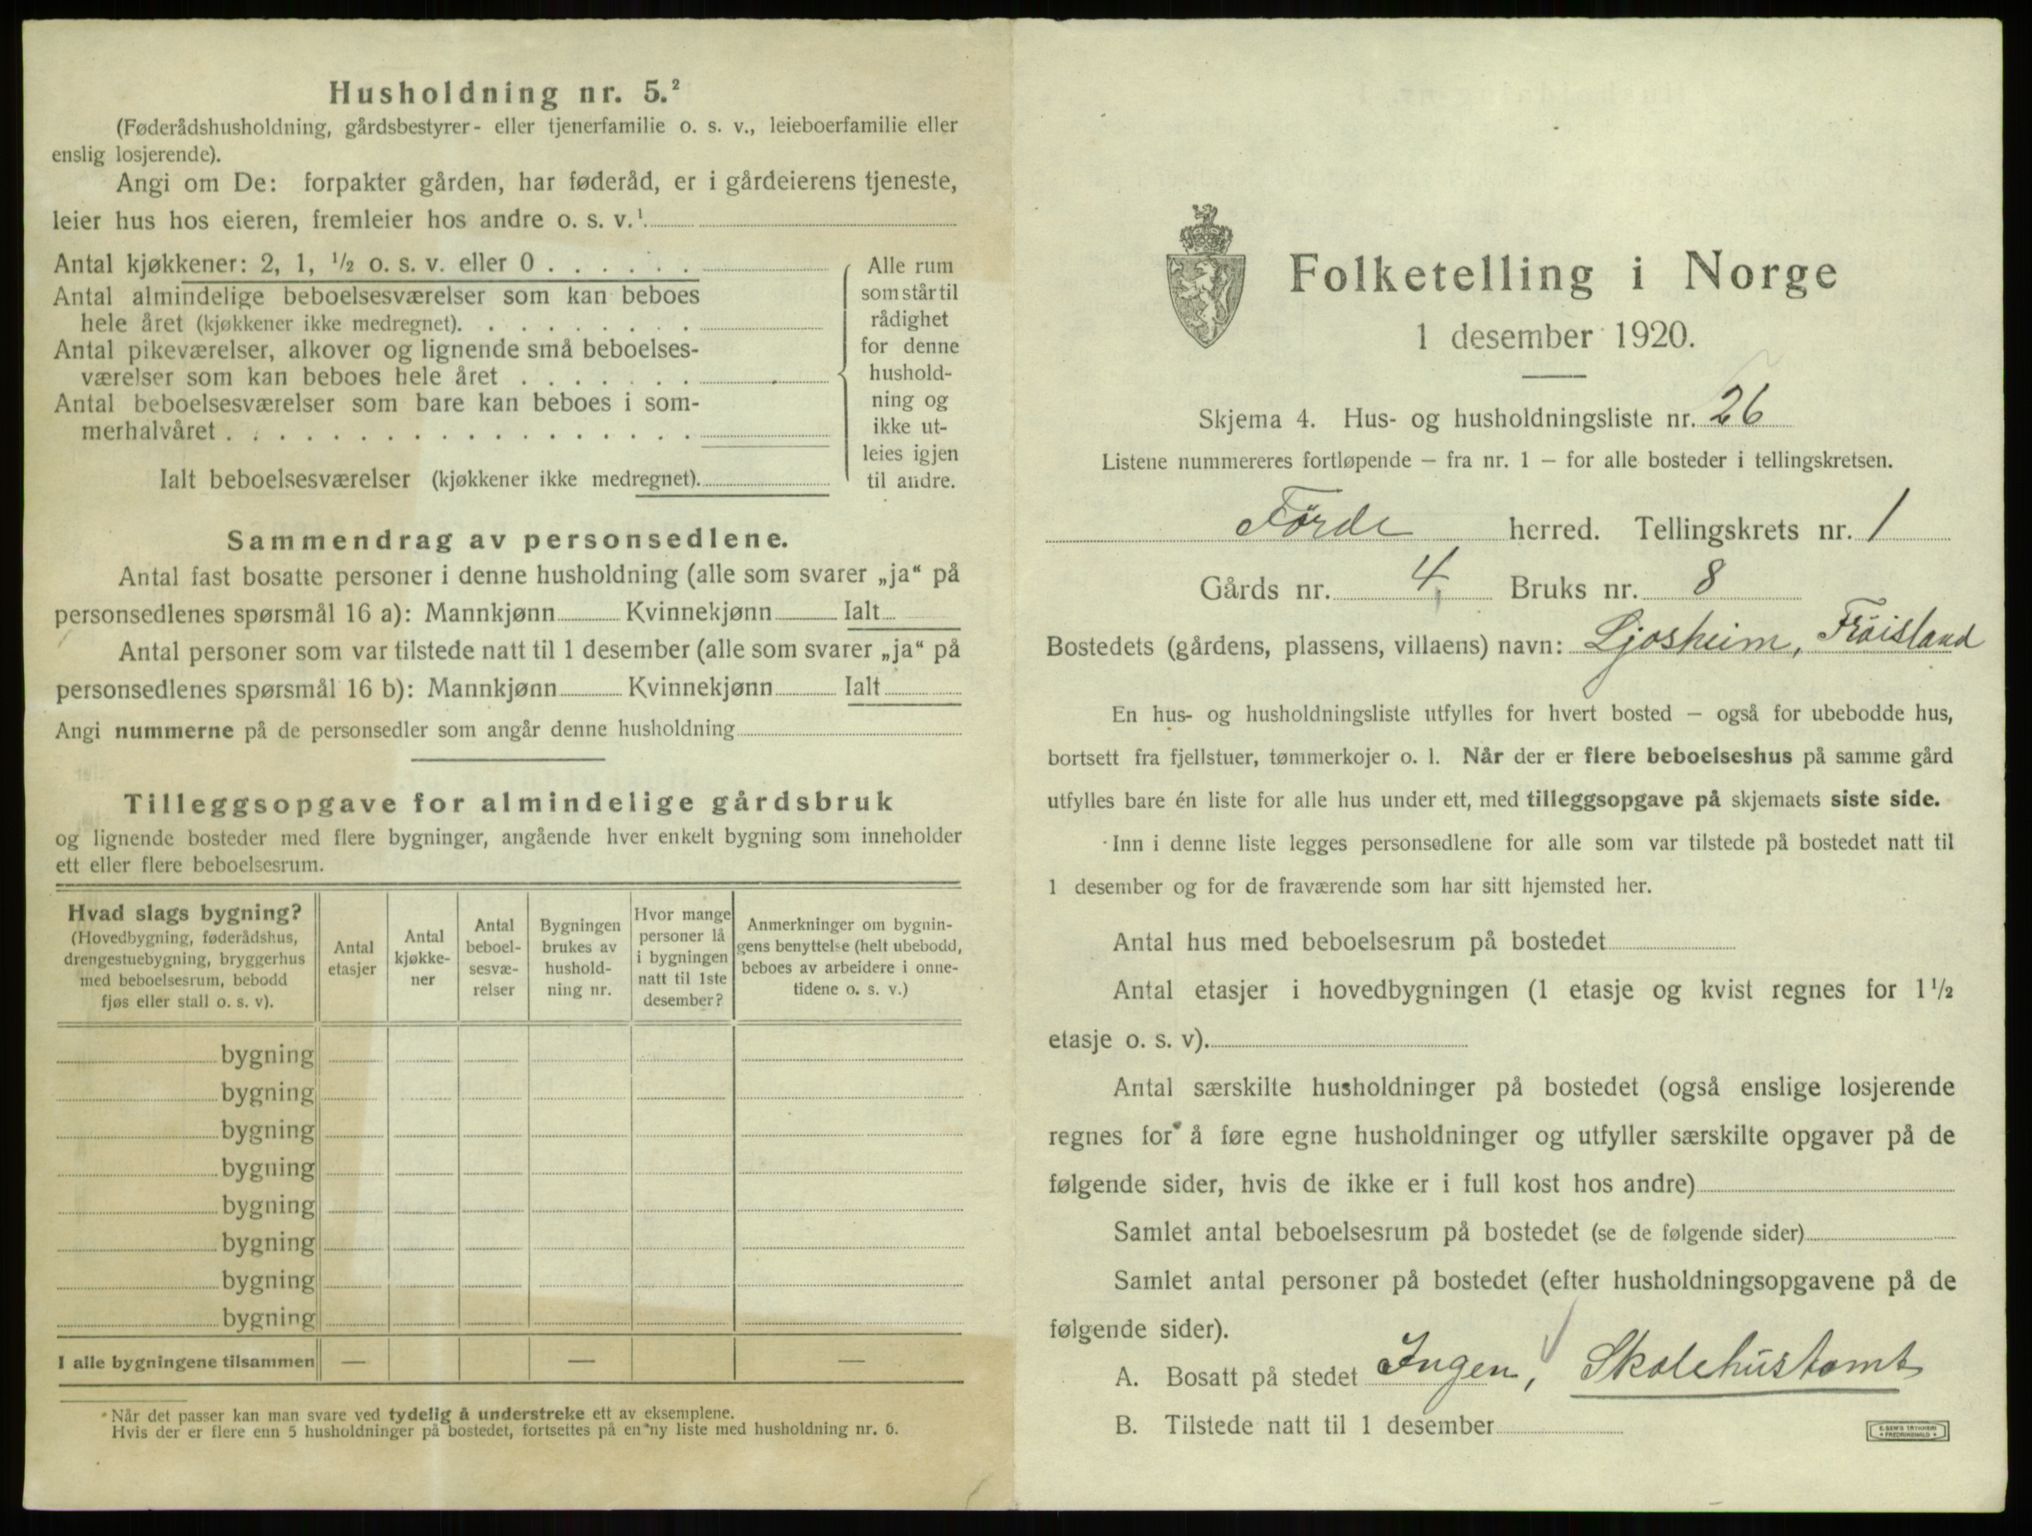 Husholdning nr. 5.²
(Føderådshusholdning, gårdsbestyrer- eller tjenerfamilie o. s. v., leieboerfamilie eller
enslig losjerende).
Angi om De: forpakter gården, har føderåd, er i gårdeierens tjeneste,
leier hus hos eieren, fremleier hos andre o. s. v.¹
Antal kjøkkener: 2, 1, ½ o. s. v. eller 0 . . . . . .
Antal almindelige beboelsesværelser som kan beboes
hele året (kjøkkener ikke medregnet). . . . . . . . .
Antal pikeværelser, alkover og lignende små beboelses-
værelser som kan beboes hele året . . . . . . .
Antal beboelsesværelser som bare kan beboes i som-
merhalvåret . . . . . . . . . . . . . . . . . .
Ialt beboelsesværelser (kjøkkener ikke medregnet).
Alle rum
som står til
rådighet
for denne
hushold-
ning og
ikke ut-
leies igjen
til andre.
Sammendrag av personsedlene.
Antal fast bosatte personer i denne husholdning (alle som svarer „ja“ på
personsedlenes spørsmål 16 a): Mannkjønn Kvinnekjønn Ialt
Antal personer som var tilstede natt til 1 desember (alle som svarer „ja“ på
personsedlenes spørsmål 16 b): Mannkjønn Kvinnekjønn Ialt
Angi nummerne på de personsedler som angår denne husholdning
Tilleggsopgave for almindelige gårdsbruk
og lignende bosteder med flere bygninger, angående hver enkelt bygning som inneholder
ett eller flere beboelsesrum.
Hvad slags bygning?
(Hovedbygning, føderådshus,
drengestuebygning, bryggerhus
med beboelsesrum, bebodd
fjøs eller stall o. s. v).
Antal
etasjer
Antal
kjøkke-
ner
Antal
beboel-
sesvæ-
relser
Bygningen
brukes av
hushold-
ning nr.
Hvor mange
personer lå
i bygningen
natt til 1ste
desember?
Anmerkninger om bygnin-
gens benyttelse (helt ubebodd,
beboes av arbeidere i onne-
tidene o. s. v.)
bygning
bygning
bygning
bygning
bygning
bygning
bygning
bygning
I alle bygningene tilsammen — — —
¹ Når det passer kan man svare ved tydelig å understreke ett av eksemplene.
Hvis der er flere enn 5 husholdninger på bostedet, fortsettes på en ny liste med husholdning nr. 6.
Folketelling i Norge
1 desember 1920.
Skjema 4. Hus- og husholdningsliste nr. 26
Listene nummereres fortløpende – fra nr. 1 – for alle bosteder i tellingskretsen.
Førde herred. Tellingskrets nr. 1
Gårds nr. 4 Bruks nr. 8
Bostedets (gårdens, plassens, villaens) navn: Ljosheim, Frøisland
En hus- og husholdningsliste utfylles for hvert bosted – også for ubebodde hus,
bortsett fra fjellstuer, tømmerkojer o. l. Når der er flere beboelseshus på samme gård
utfylles bare én liste for alle hus under ett, med tilleggsopgave på skjemaets siste side.
Inn i denne liste legges personsedlene for alle som var tilstede på bostedet natt til
1 desember og for de fraværende som har sitt hjemsted her.
Antal hus med beboelsesrum på bostedet
Antal etasjer i hovedbygningen (1 etasje og kvist regnes for 1½
etasje o. s. v).
Antal særskilte husholdninger på bostedet (også enslige losjerende
regnes for å føre egne husholdninger og utfyller særskilte opgaver på de
følgende sider, hvis de ikke er i full kost hos andre)
Samlet antal beboelsesrum på bostedet (se de følgende sider)
Samlet antal personer på bostedet (efter husholdningsopgavene på de
følgende sider).
A. Bosatt på stedet Ingen, Skolehustomt
B. Tilstede natt til 1 desember